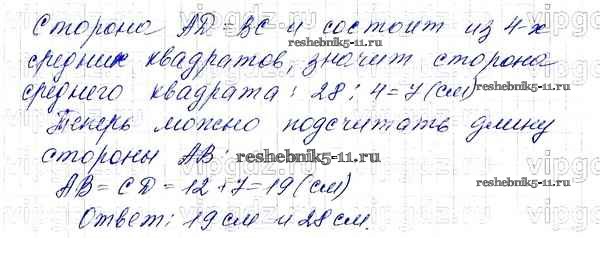 Сторона AD = BC и состоит из 4-х
reshebnik5-11.ru
средних квадратов, значит сторона
среднего квадрата: 28 : 4 = 7 (см)
reshebnik5-11.ru
Теперь можно подсчитать длину
стороны AB:
reshebnik5-11.ru
AB = CD = 12 + 7 = 19 (см)
reshebnik5-11.ru
Ответ: 19 см и 28 см.